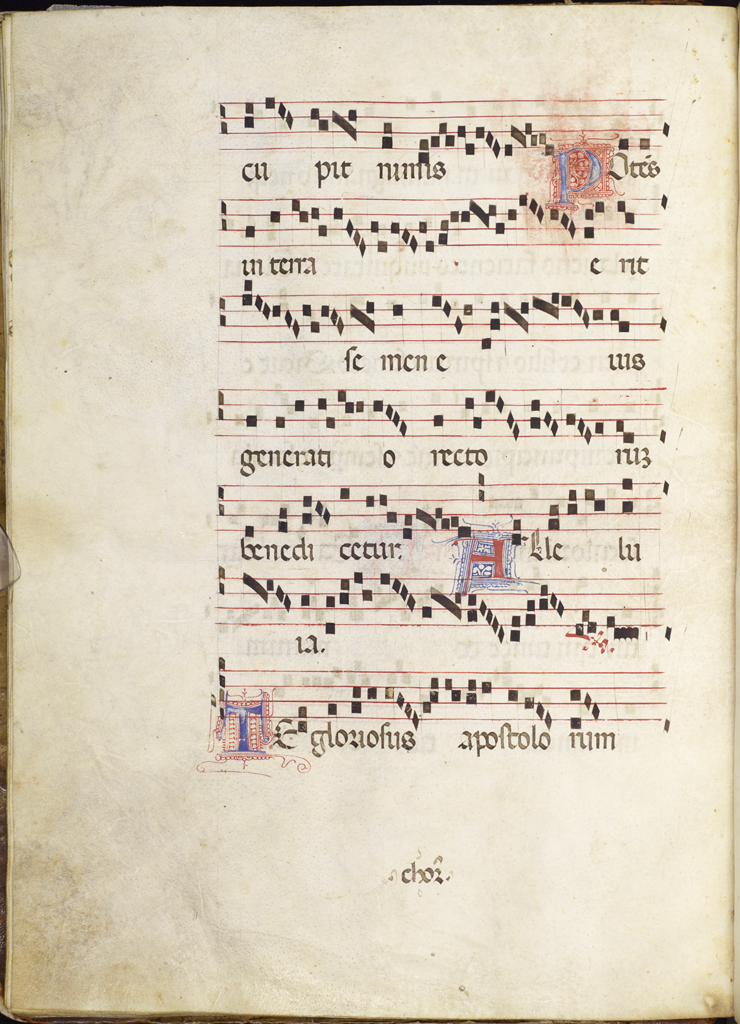 cu pit nimis Potēs
in terra e rit
se men e ius
generati o recto ruʒ
bene di cetur. Alle lu
ia.
TE gloriosus apostolo rum
chor̄.